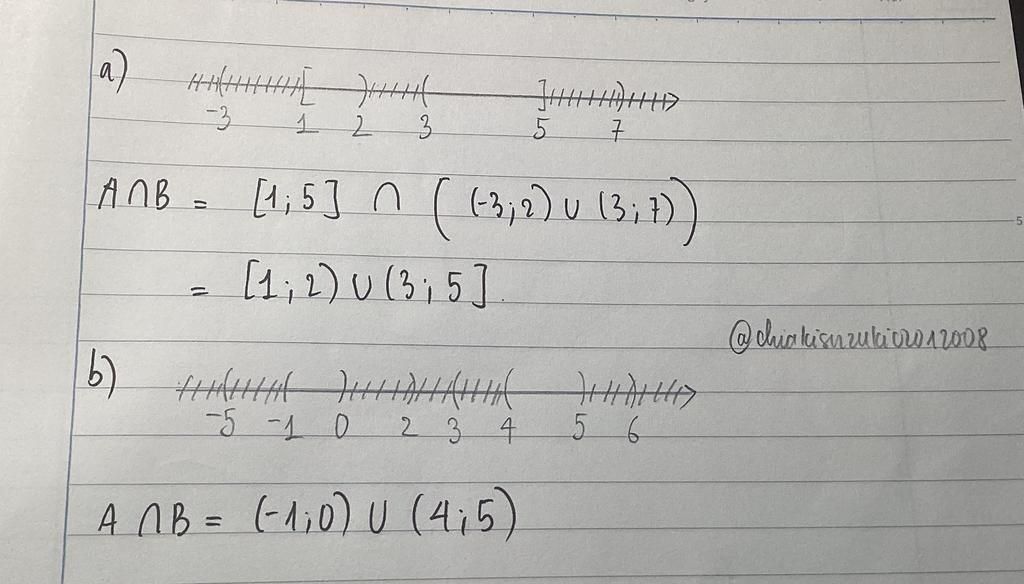 a)
-3 1 2 3 5 7
A∩B = [1;5] ∩ ((-3;2) ∪ (3;7))
= [1;2) ∪ (3;5].
@chiakisuzuki02012008
b)
-5 -1 0 2 3 4 5 6
A∩B = (-1;0) ∪ (4;5)
5